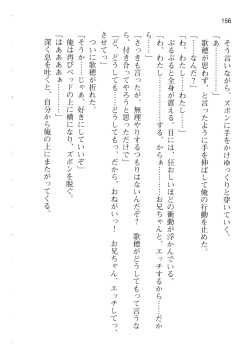 156
そう言いながら、ズボンに手をかけゆっくりと穿いていく。
「あ……」
歌穂が思わず、と言ったように手を伸ばして俺の行動を止めた。
「……なんだ？」
「わ、わたし……わたし……」
ぶるぶると全身が震える。目には、狂おしいほどの衝動が浮かんでいる。
「わ、わたし…………する、からぁ………お兄ちゃんと、エッチするから……だから……」
「さっきも言ったが、無理やりするつもりはないんだぞ？　歌穂がどうしてもって言うなら、付き合ってやろうと思っただけで」
「ど、どうしても……どうしてもっ、だから、おねがいっ！　お兄ちゃん、エッチしてっ、させてっ」
ついに歌穂が折れた。
「そうか……じゃあ、好きにしていいぞ」
俺は再びベッドの上に横になり、ズボンを脱ぐ。
「はぁあああぁ」
深く息を吐くと、自分から俺の上にまたがってくる。